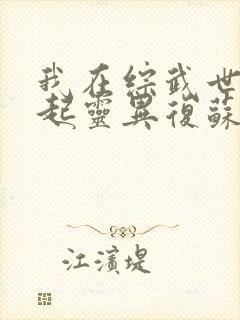 我在綜武世
起靈異復蘇
江濱堤